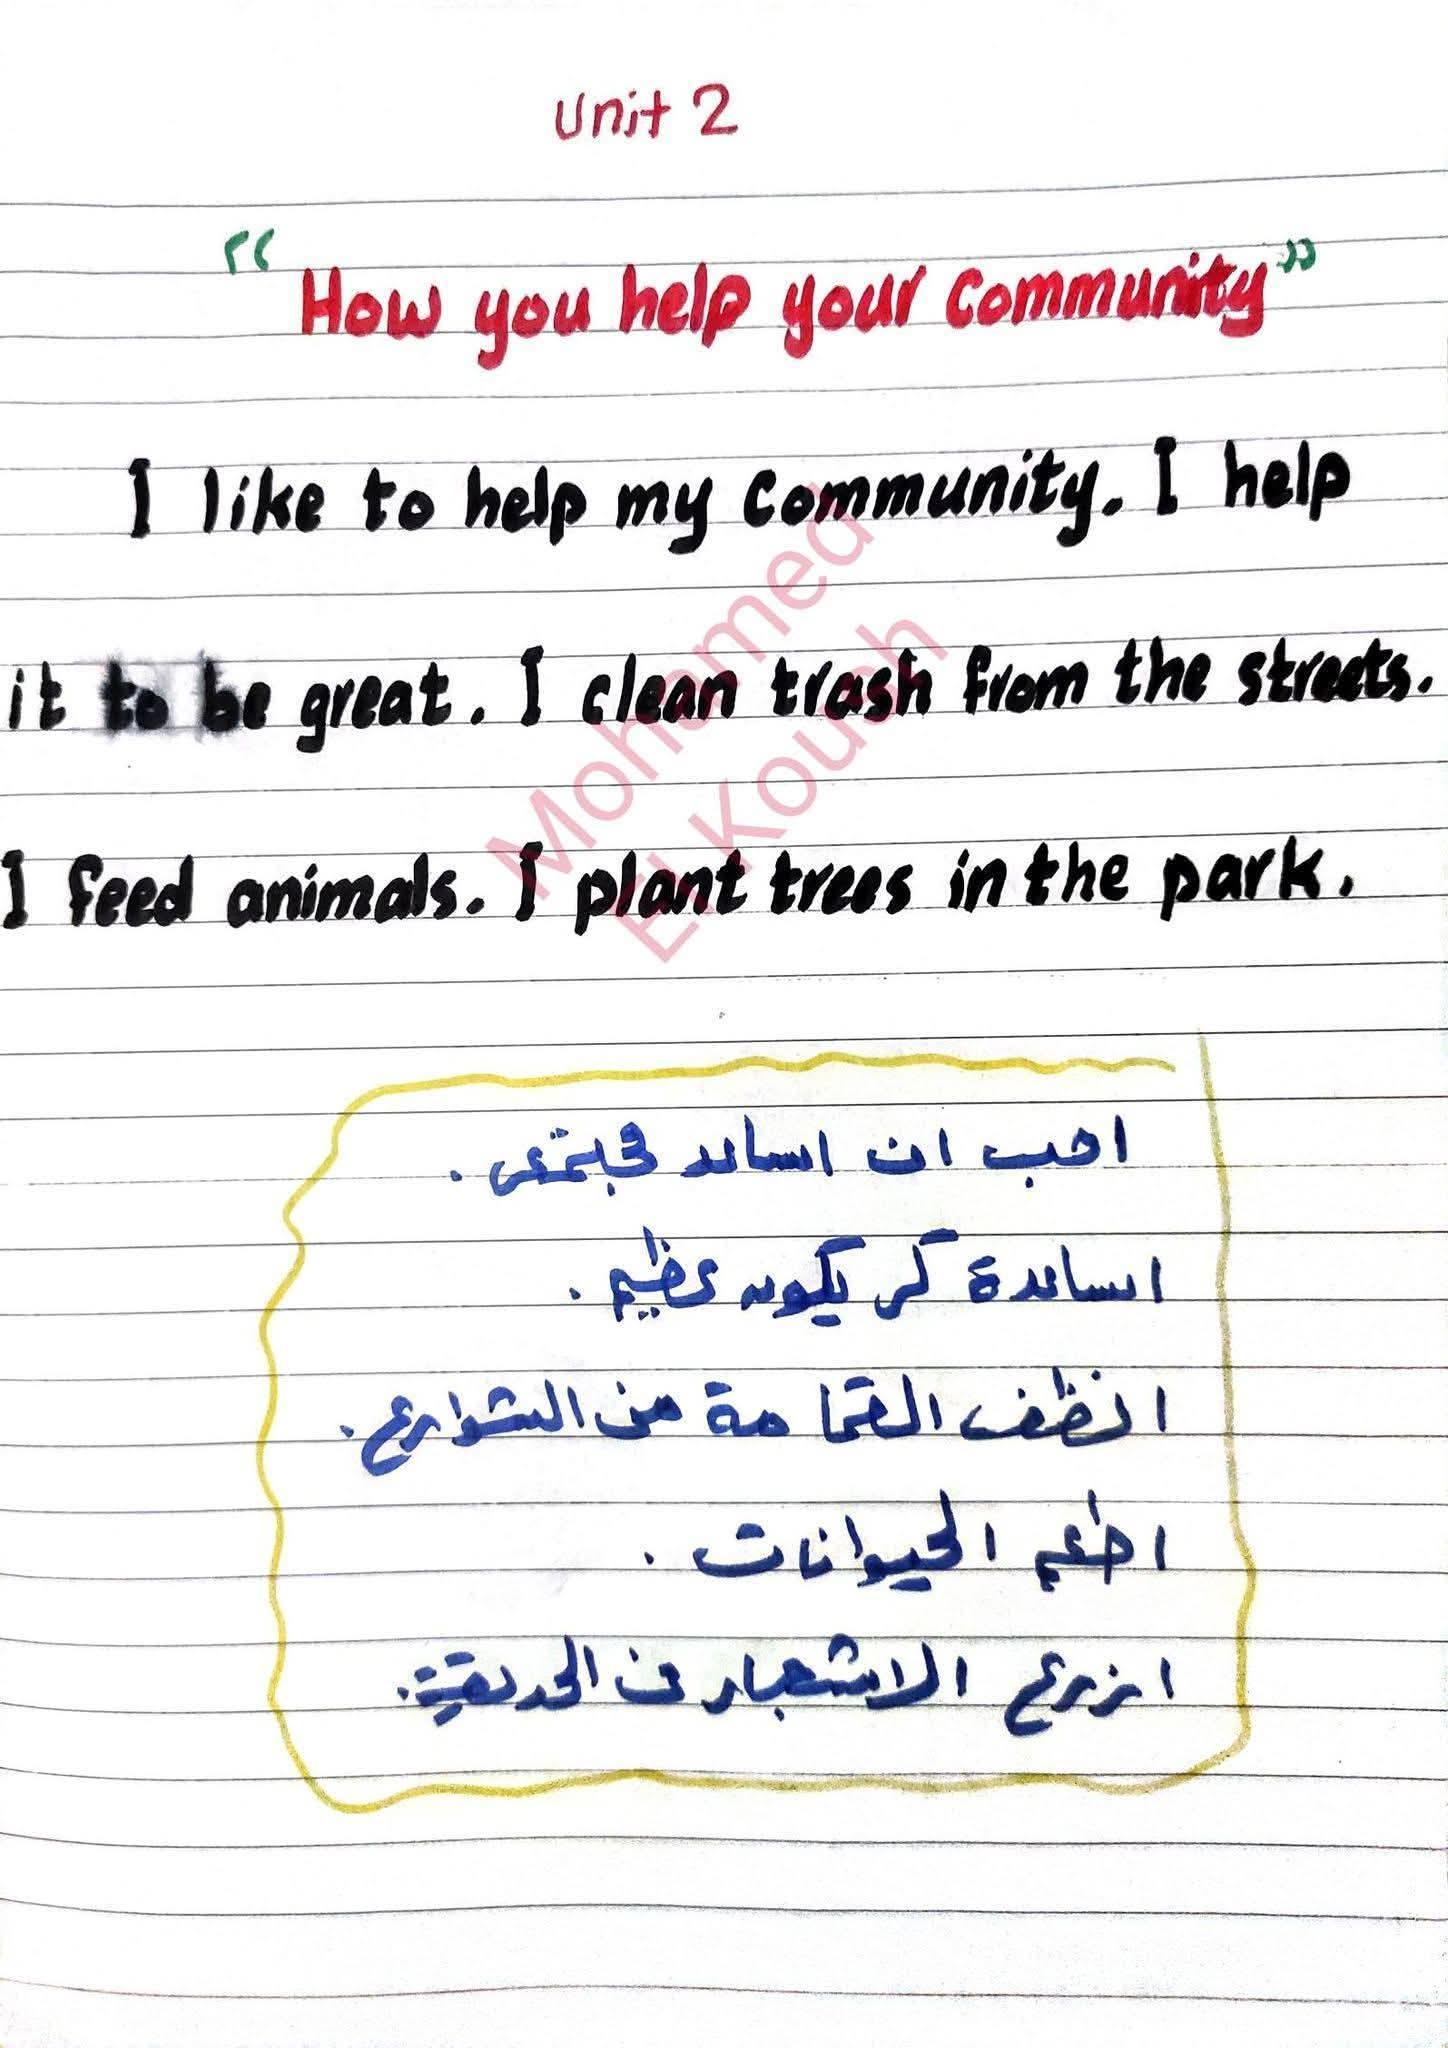 Unit 2
"How you help your community"
I like to help my community. I help
it to be great. I clean trash from the streets.
I feed animals. I plant trees in the park.
Mohamed
El Koush
احب ان اساعد مجتمعى.
اساعدة كى يكون عظيم.
انظف القمامة من الشوارع.
اطعم الحيوانات.
ازرع الاشجار فى الحديقة.